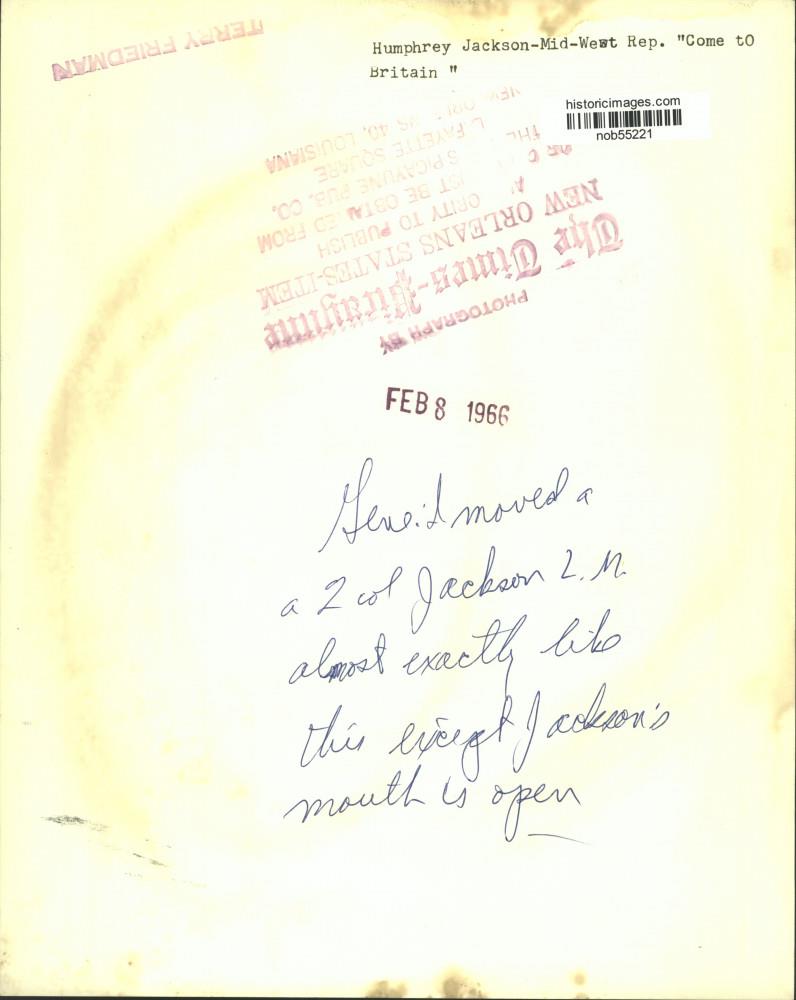 TERRY FRIEDMAN
Humphrey Jackson-Mid-West Rep. "Come tO
Britain "
historicimages.com
nob55221
PHOTOGRAPH BY
The Times-Picayune
NEW ORLEANS STATES-ITEM
ORITY TO PUBLISH
ST BE OBTA ED FROM
S PICAYUNE PUB. CO.
L FAYETTE SQUARE
NEW ORL NS 40, LOUISIANA
FEB 8 1966
Gene: I moved a
a 2 col Jackson L.M.
almost exactly like
this except Jackson's
mouth is open